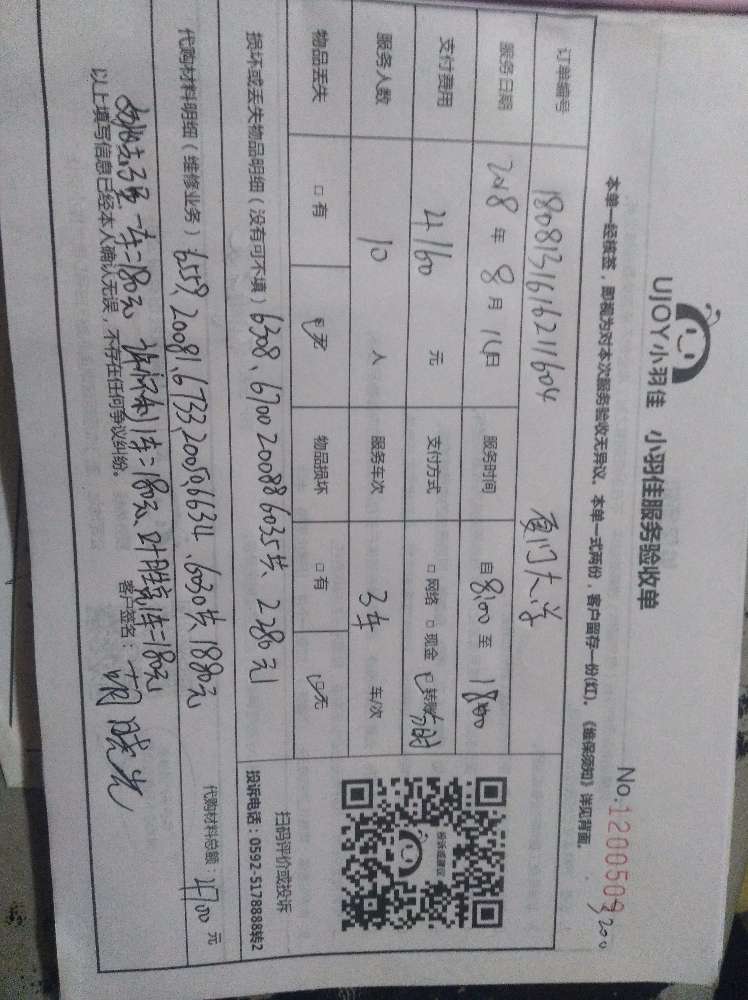 UJOY小羽佳 小羽佳服务验收单
No.1200509
200
本单一经核签，即视为对本次服务验收无异议。本单一式两份，客户留存一份(红)。《维保须知》详见背面。
订单编号 180813161621604 厦门大学
服务日期 2018年8月14日 服务时间 自8:00至1800
支付费用 4160元 支付方式 □网络 □现金 □转账
服务人数 10人 服务车次 3车 车/次
物品丢失 □有 □无 物品损坏 □有 □无
扫码评价或投诉
投诉或建议
投诉电话：0592-5178888转2
损坏或丢失物品明细（没有可不填）6308、6700 20088 6035共、2280元
代购材料明细（维修业务）6559、20081、6733、20059 6634、6030共1880元
一车=180元 1车=180元、叶胜 1车=180元
代购材料总额：4700元
以上填写信息已经本人确认无误，不存在任何争议纠纷。 客户签名：胡晓光